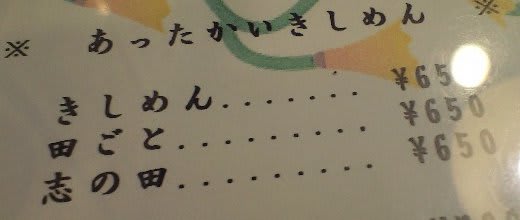 ※ あったかいきしめん ※
きしめん....... ¥650
田ごと......... ¥650
志の田......... ¥650